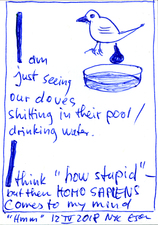 I am
just seeing
our doves
shitting in their pool/
drinking water.
I think "how stupid" –
but then HOMO SAPIENS
comes to my mind
"Hmm" 12 IV 2018 NYC